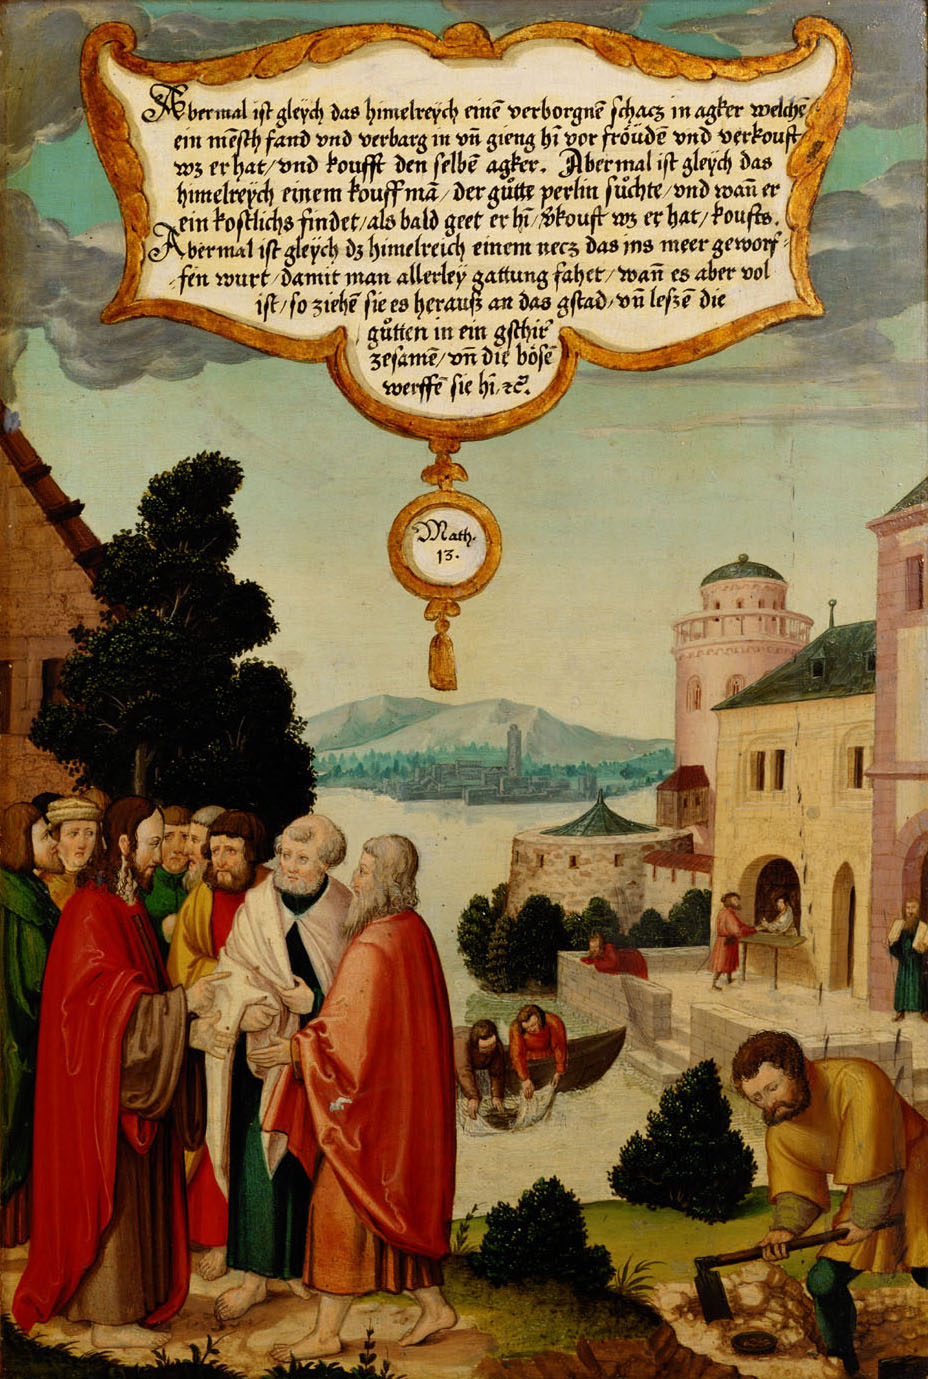 Abermal ist gleÿch das himelreÿch einē verborgnē schacz in agker welchē
ein mēsch fand vnd verbarg in vn̄ gieng hī vor fröudē vnd verkoufft
wz er hat/vnd koufft den selbē agker. Abermal ist gleÿch das
himelreÿch einem kouffmā/der gůtte perlin sůchte/vnd wan̄ er
ein kostlichs findet/als bald geet er hī/v̄kouft wz er hat/koufts.
Abermal ist gleÿch dz himelreich einem necz das ins meer geworf-
fen wurt/damit man allerleÿ gattung fahet/wan̄ es aber vol
ist/so ziehē sie es herauß an das gstad/vn̄ leszē die
gůtten in ein gschir
zesamē/vn̄ die bösē
werffē sie hī/ꝛc̄.
Math.
13.